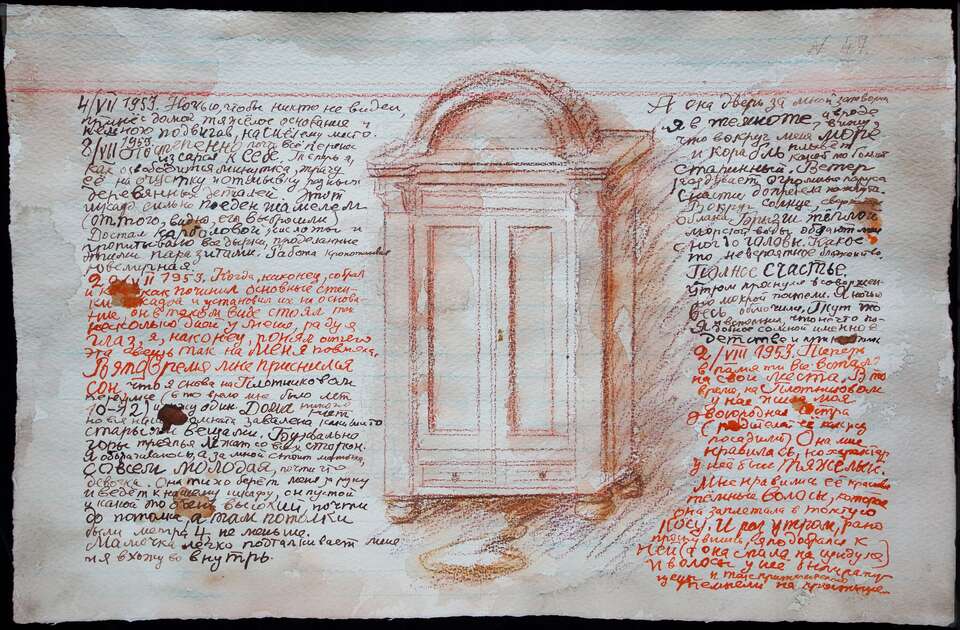 4/VII 1953. Ночью, чтобы никто не видел,
принёс домой тяжёлое основание и
немного подвигав, на место.
8/VII 1953. Постепенно почти всё перенёс
из сарая к себе. Теперь я,
как освободится минутка, трачу
её на очистку и отмывку разных
деревянных деталей. Этот
шкаф сильно поеден шашелем
(от того, видно, его и выбросили).
Достал карболовой кислоты и
пропитываю все дырки, проделанные
этими паразитами. Работа
ювелирная!
VII 1953. Когда, наконец, собрал
и починил основные стен-
ки шкафа и установил их на основа-
ние, он в таком виде стоял
несколько дней у меня, радуя
глаз, я, наконец, понял отчего
эта вещь так на меня повлияла.
В это время мне приснился
сон, что я снова на Плотниковом
переулке (в то время мне было лет
10-12) и хожу один. Дома никого
нет комната завалена какими-то
старыми вещами. Буквально
горы тряпья лежат со всех сторон.
Я оборачиваюсь, а за мной стоит мамочка,
совсем молодая, почти что
девочка. Она тихо берёт меня за руку
и ведёт к нашему шкафу, он пустой
и какой-то очень высокий, почти
до потолка, а там потолки
были метра 4, не меньше.
Мамочка легко подталкивает меня
и я вхожу во внутрь.
N 47.
А она дверь за мной затворила
Я в темноте, а вроде
что вокруг меня море
и корабль плывёт
старинный. Ветер
раздувает огромные паруса
снасти
Вокруг солнце,
облака. Брызги тёплой
морской воды обдают меня
с ног до головы. Какое-
то невероятное блаженство.
Полное счастье.
Утром проснулся в совершен-
но мокрой постели. Я ночью
весь обмочился. Тут-то
я вспомнил, что нечто по-
добное со мной именно в
детстве и
2/VIII 1953. Теперь
в памяти всё встало
на свои места. В то
время, на Плотниковом
у нас жила моя
двоюродная сестра
(родителей её
посадили). Она мне
нравилась, но характер
у неё был тяжёлый.
Мне нравились её красивые
тёмные волосы, которые
она заплетала в толстую
косу. И раз утром, рано
проснувшись, я подобрался к
ней (а она спала на сундуке)
и волосы у неё
и так
темнели на простыне...